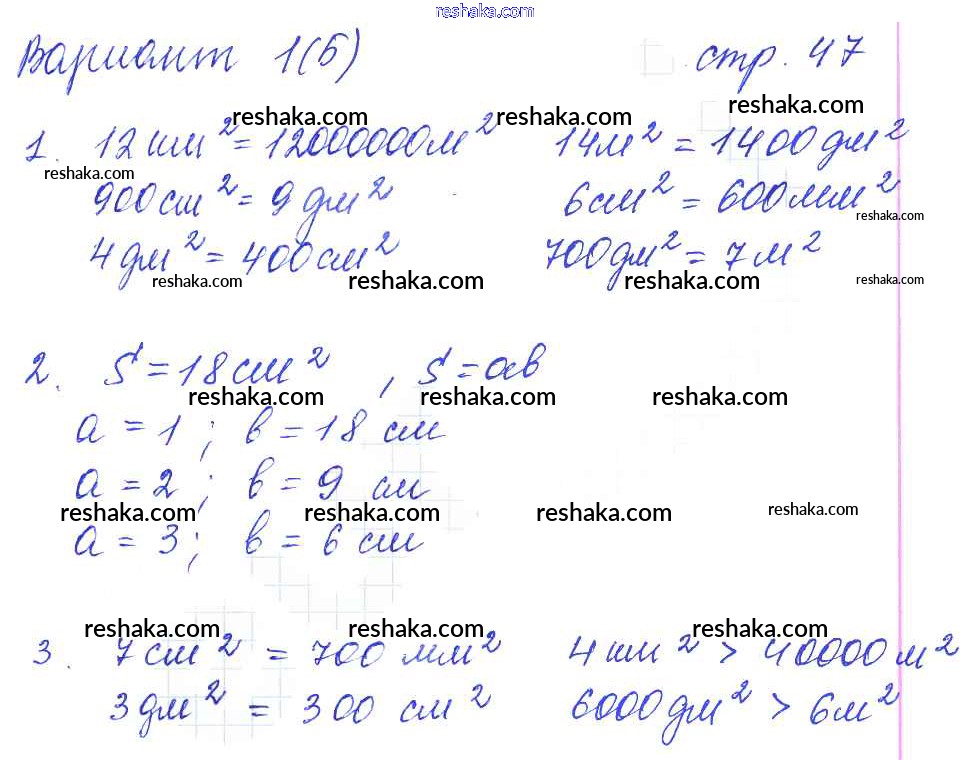 reshaka.com
Вариант 1(б) стр. 47
reshaka.com reshaka.com reshaka.com
1. 12 км² = 12000000м² 14м² = 1400 дм²
reshaka.com
900см² = 9 дм² 6см² = 600мм²
reshaka.com
4дм² = 400см² 700дм² = 7м²
reshaka.com reshaka.com reshaka.com reshaka.com
2. S = 18см², S = ab
reshaka.com reshaka.com reshaka.com
a = 1; b = 18 см
a = 2; b = 9 см
reshaka.com reshaka.com reshaka.com reshaka.com
a = 3; b = 6 см
reshaka.com reshaka.com reshaka.com
3. 7см² = 700 мм² 4 км² > 40000м²
3дм² = 300 см² 6000дм² > 6м²